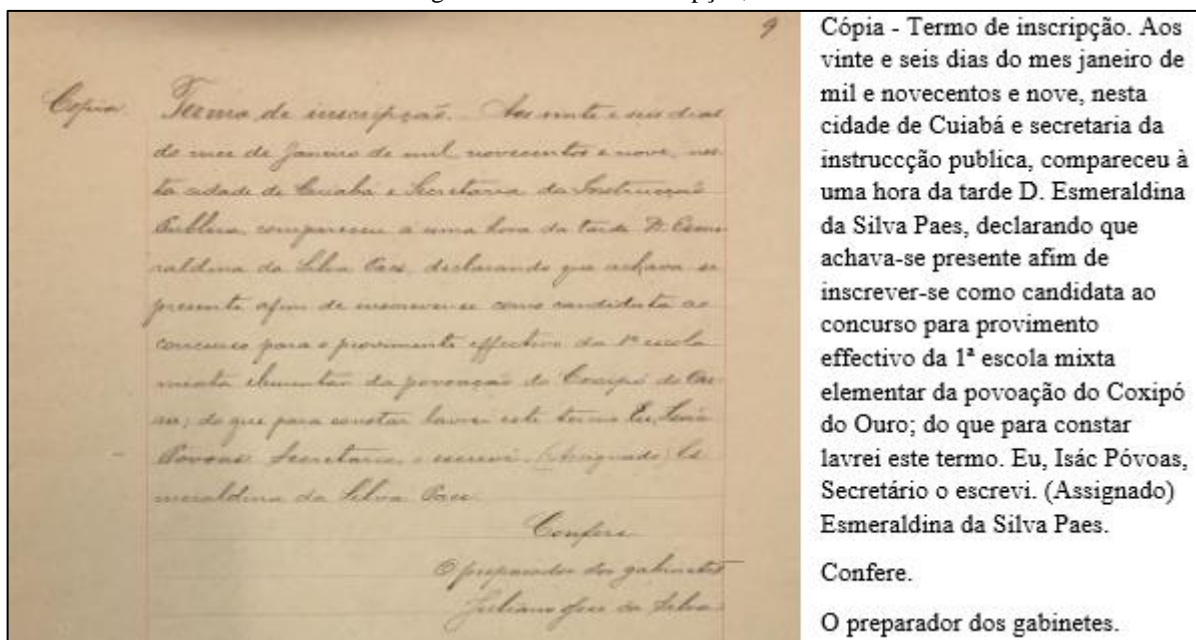 9
Copia. Termo de inscripção. Aos vinte e seis dias
do mez de Janeiro de mil novecentos e nove, nes-
ta cidade de Cuiabá e Secretaria da Instrucção
Publica, compareceu á uma hora da tarde D. Esme-
raldina da Silva Paes, declarando que achava-se
presente afim de inscrever-se como candidata ao
concurso para o provimento effectivo da 1ª escola
mixta elementar da povoação do Coxipó do Ou-
ro; do que para constar lavrei este termo. Eu, Isác
Povoas Secretario, o escrevi. (Assignado) Es-
meraldina da Silva Paes.
Confere
O preparador dos gabinetes
Juliano José da Silva
Cópia - Termo de inscripção. Aos
vinte e seis dias do mes janeiro de
mil e novecentos e nove, nesta
cidade de Cuiabá e secretaria da
instruccção publica, compareceu à
uma hora da tarde D. Esmeraldina
da Silva Paes, declarando que
achava-se presente afim de
inscrever-se como candidata ao
concurso para provimento
effectivo da 1ª escola mixta
elementar da povoação do Coxipó
do Ouro; do que para constar
lavrei este termo. Eu, Isác Póvoas,
Secretário o escrevi. (Assignado)
Esmeraldina da Silva Paes.
Confere.
O preparador dos gabinetes.